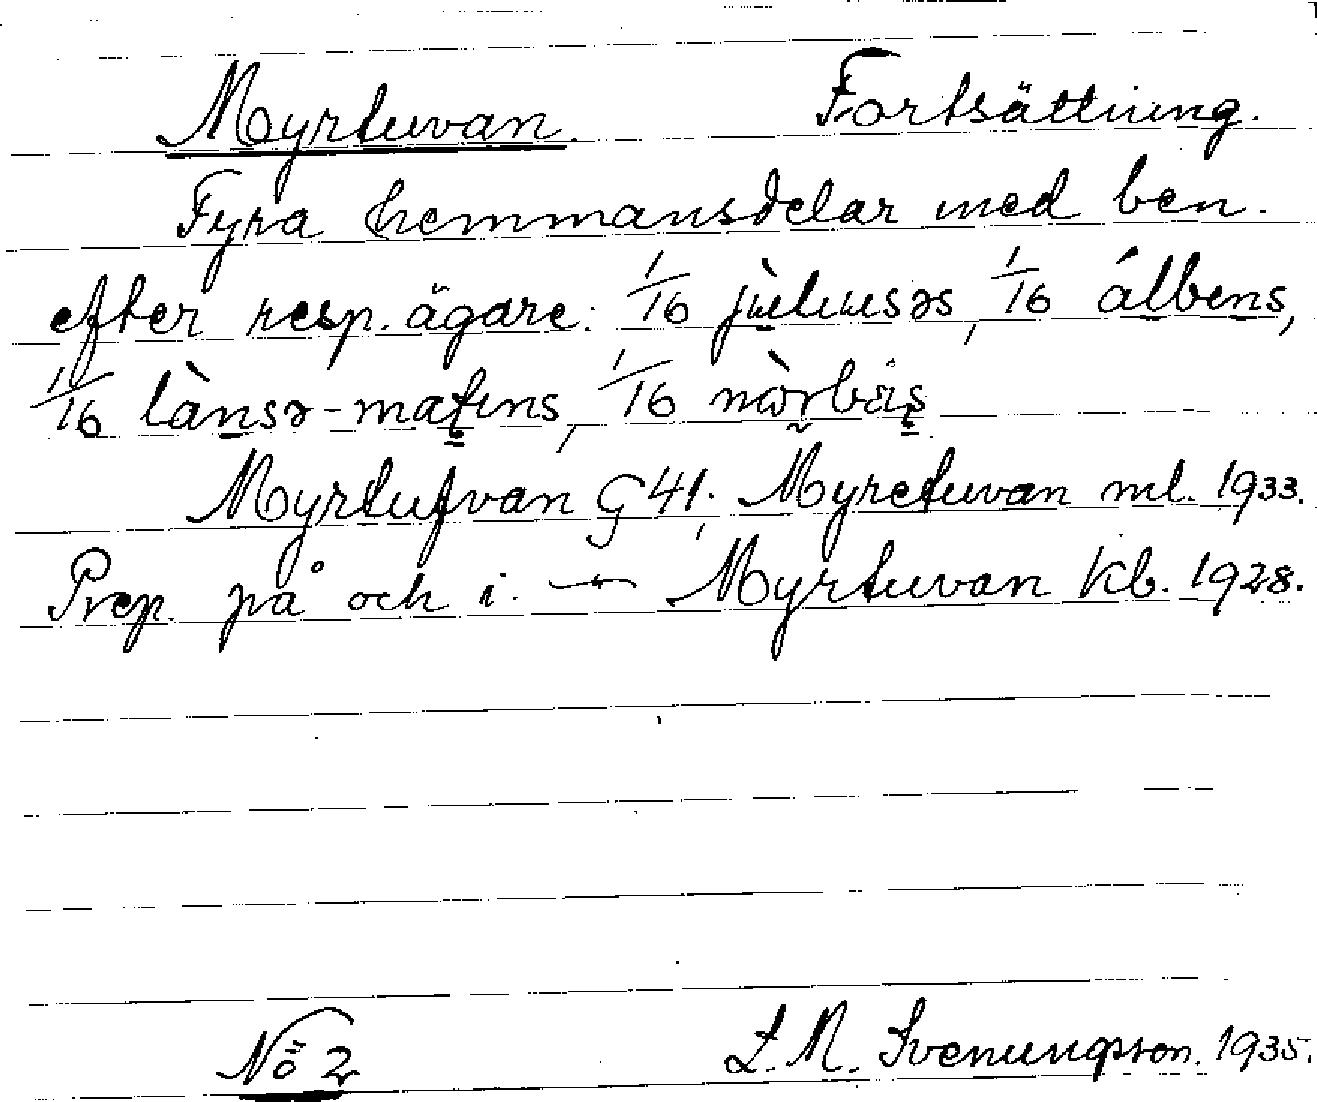 Myrtuvan. Fortsättning.
Fyra hemmansdelar med ben.
efter resp. ägare: 1/16 jùliusəs, 1/16 álbens,
1/16 lànsə-matins, 1/16
Myrtufvan G 41; Myretuvan ml. 1933.
Prep. på och i. — Myrtuvan Kb. 1928.
Nö 2 L. M. Svenungsson. 1935.